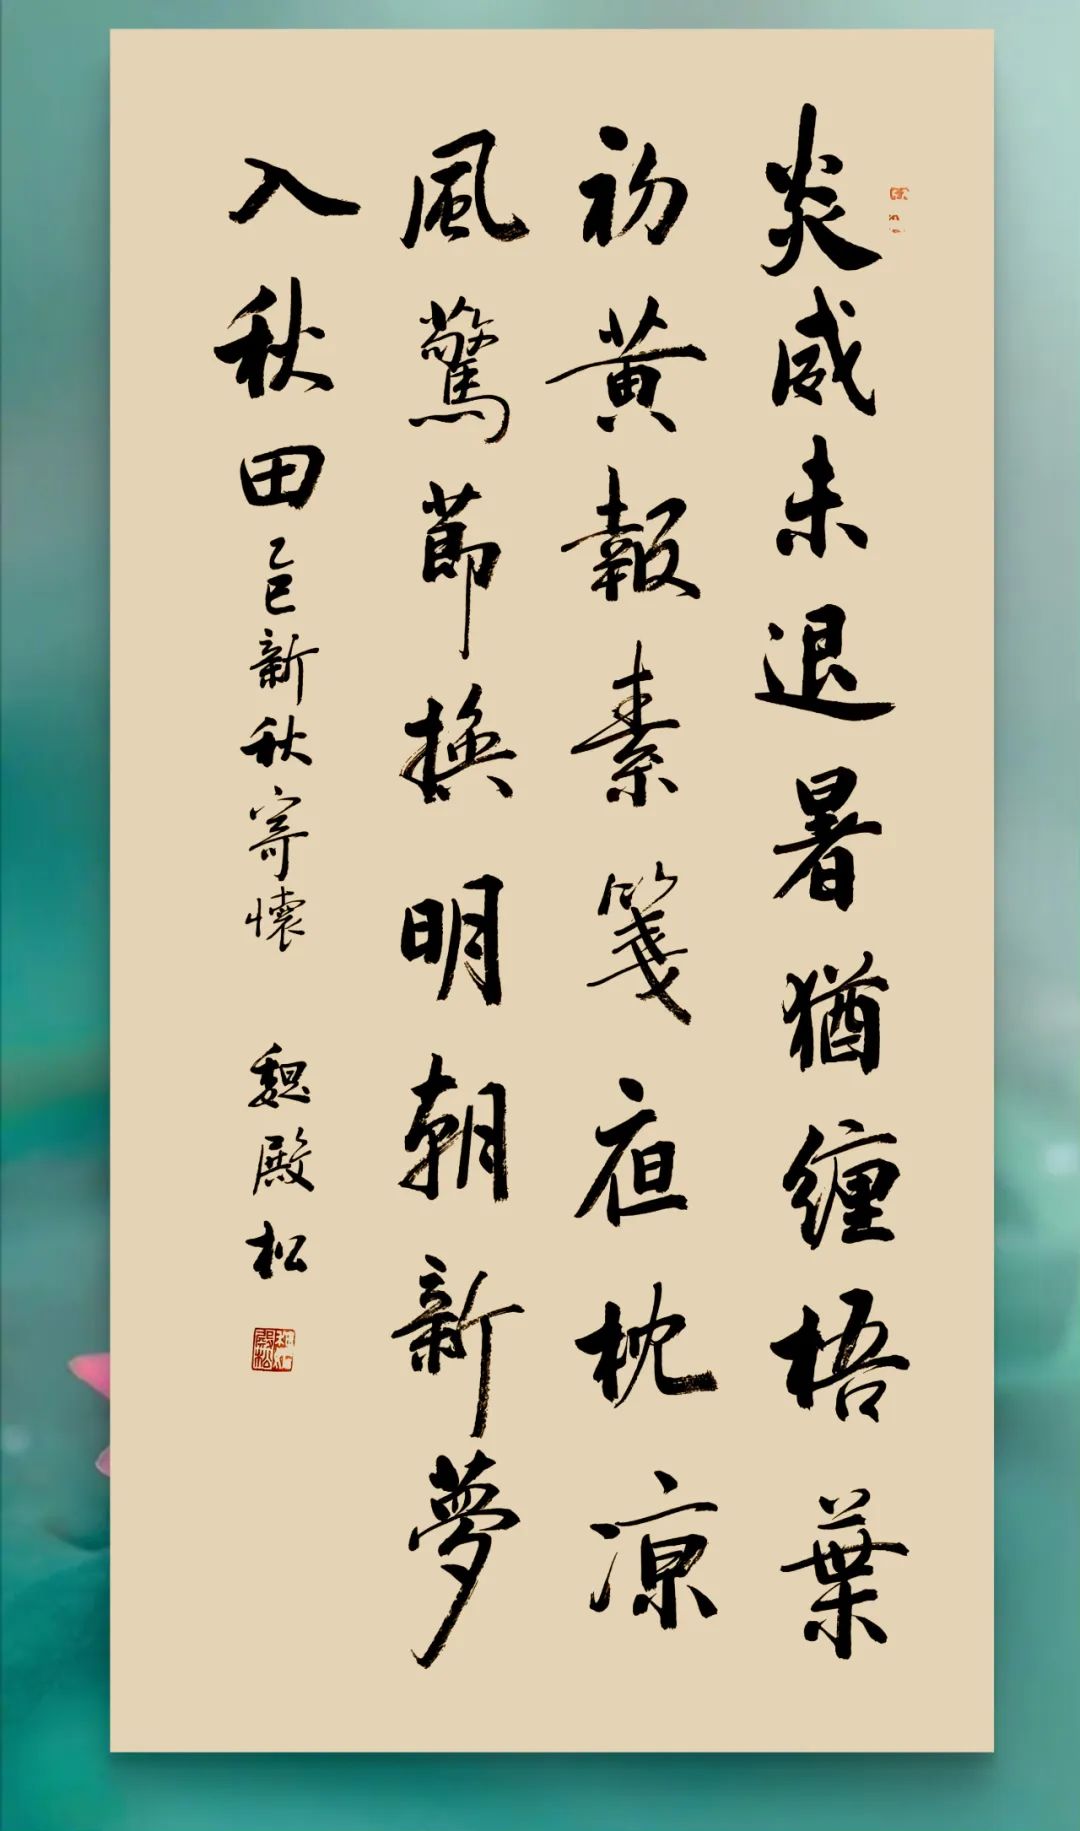 炎威未退暑猶纏梧葉
初黄報素箋夜枕凉
風驚節換明朝新夢
入秋田乙巳新秋寄懷 魏殿松